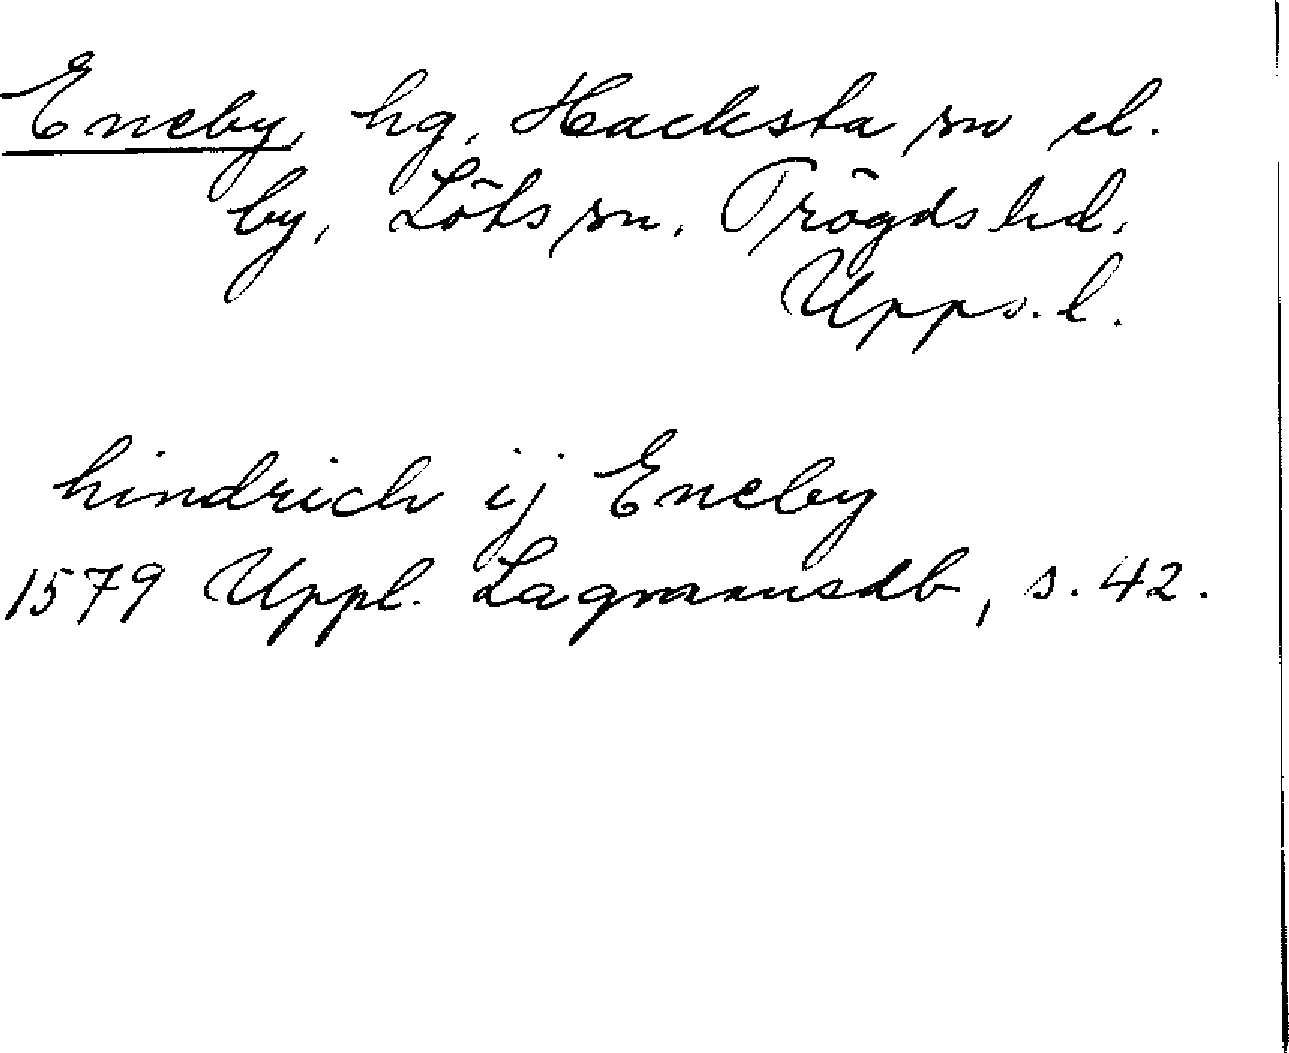 Eneby, hg, Hacksta sn el.
by, Löts sn, Trögds hd,
Upps. l.
hindrich ij Eneby
1579 Uppl. Lagmansdb, s. 42.